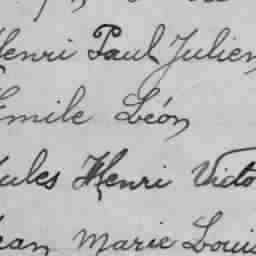 Henri Paul Julien
Emile Léon
Jules Henri Victo
Jean Marie Louis